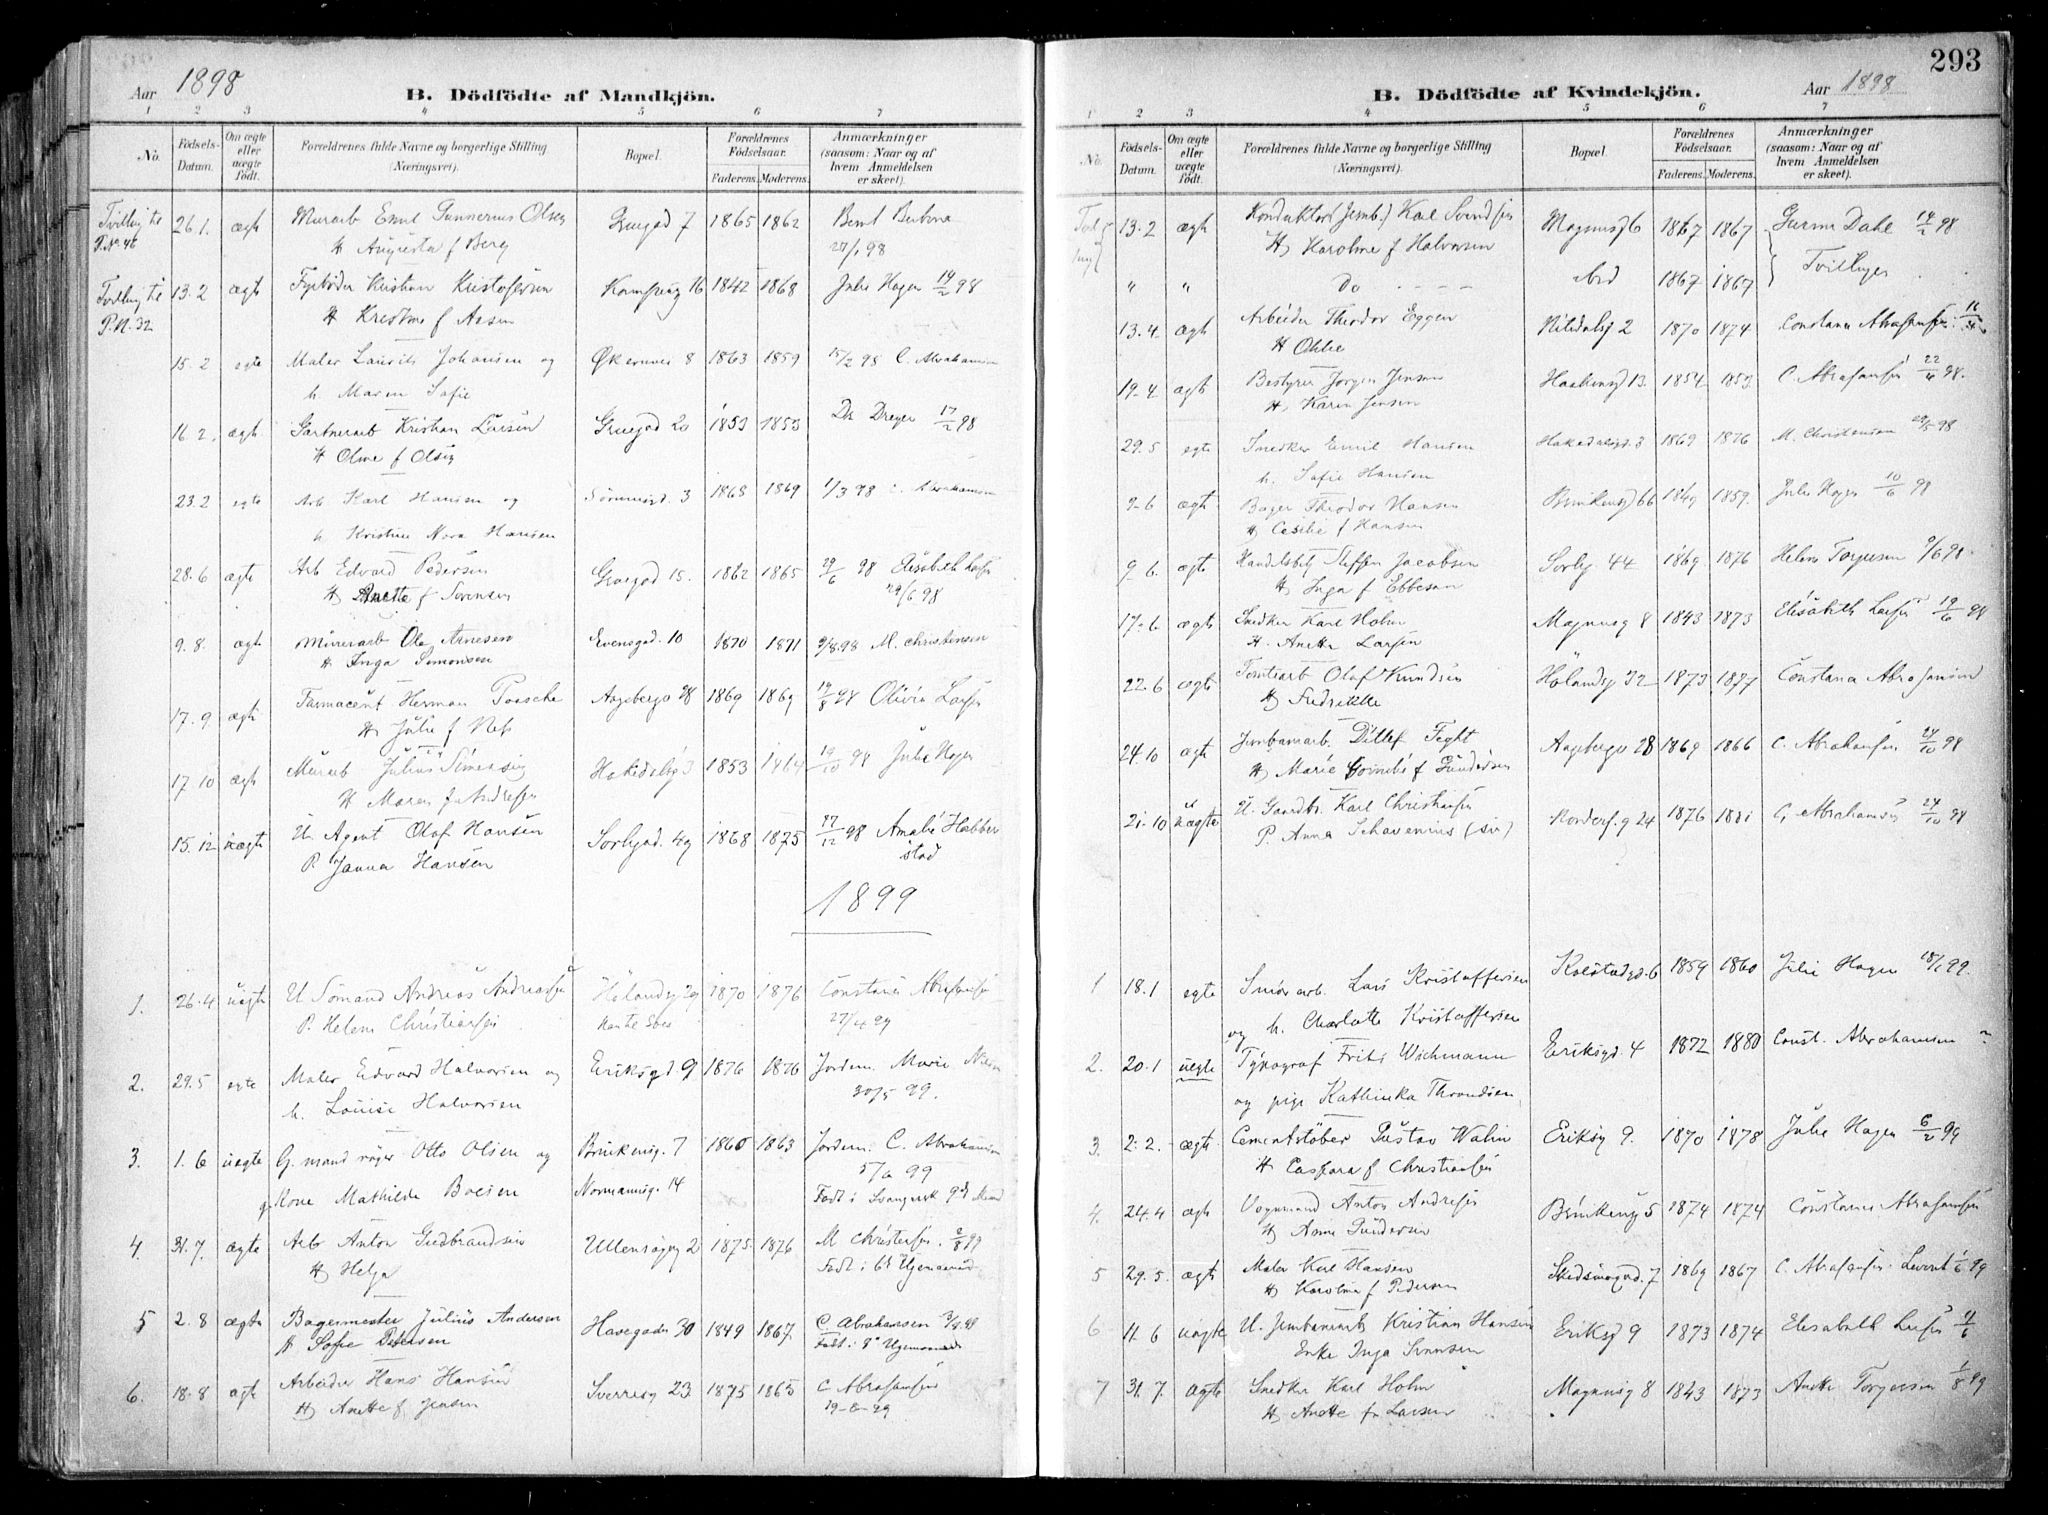 Aar 1898
B. Dödfödte af Mandkjön.
1 2 3 4 5 6 7
No. Födsels-Datum. Om ægte eller uægte födt. Forældrenes fulde Navne og borgerlige Stilling (Næringsvei). Bopæl. Forældrenes Födselsaar. Faderens. Moderens. Anmærkninger (saasom: Naar og af hvem Anmeldelsen er skeet).
Tvilling til 26.1. ægte Murarb Emil Gunnerius Olsen Gruegad 7 1865 1862 Bernt
P.No 46 H Augusta f Berg 27/1 98
Tvilling til 13.2 ægte Fyrbøder Kristian Kristofersen 16 1842 1868 Julie Hagen 14/2 98
P.N. 32 H Kristine f Aasen
15.2 egte Maler Laurits Johansen og Økernvei 8 1863 1859 15/2 98 C. Abrahamsen
h. Maren Sofie
16 2. ægte Gartnerarb Kristian Larsen Gruegad 20 1853 1853 Dr Dreyer 17/2 98
H Oline f Olsen
23.2 egte Arb Karl Hansen og 3 1868 1869 1/3 98 C. Abrahamsen
h Kristine Nora Hansen
28.6 ægte Arb Edvard Pedersen Gruegad 15. 1862 1865 29/6 98 Elisabeth Larsen
H Anette f Sørensen 29/6 98
9.8. ægte Murerarb Ole Arnesen Evensgad. 10 1870 1871 9/8.98 M. Christensen
H Inga Simonsen
17.9 ægte Farmacent Herman Paasche Aagebergv 28 1869 1869 19/8 98 Olivia Larsen
H Julie f
17 10 ægte Murarb Julius Simensen Hakedalsg 3 1853 1864 19/10 98 Julie Hagen
H Maren f Andresen
15.12 uægte U. Agent Olaf Hansen Sorligad. 49 1868 1875 27/12 98 Amalie Habber
P. Janna Hansen stad
1899
1. 26.4 uægte U Sømand Andreas Andreassen Hølandsg 29 1870 1876 Constance Abrahamsen
P. Helene Christiansen 27/4 99
2. 29.5 egte Maler Edvard Halvorsen og Eriksgd 9 1876 1876 Jordem. Marie
h. Louise Halvorsen 30/5 99.
3. 1.6 uegte G. mand Otto Olsen og Brinkensg. 7 1860 1863 Jordem. C. Abrahamsen
5/6 99
g. Kone Mathilde Boesen Normannsg. 14 Født i Svangersk 9de Mnd
4 31.7. ægte Arb Anton Gudbrandsen Ullensagerg 2 1875 1876 M Christensen. 2/8 99
H Helga Født i
5 2.8 ægte Bagermester Julius Andersen Havegaden 30 1849 1867. C Abrahamsen 3/8 99
H Sofie Petersen Født i
6. 18.8 ægte Arbeider Hans Hansen Sverresg 23 1875 1865 C Abrahamsen
H Anette f Jensen 19-8-99
293
B. Dödfödte af Kvindekjön. Aar 1898
1 2 3 4 5 6 7
No. Födsels-Datum. Om ægte eller uægte födt. Forældrenes fulde Navne og borgerlige Stilling (Næringsvei). Bopæl. Forældrenes Födselsaar. Faderens. Moderens. Anmærkninger (saasom: Naar og af hvem Anmeldelsen er skeet).
13.2 ægte Konduktør (Jernb.) Karl Svendsen Magnusg 6 1867 1867 Gurine Dahl 14/2 98
H Karoline f Halvorsen
" " Do - - - - ibid 1867 1867 Tvillinger
13.4. ægte Arbeider Theodor Eggen Nitedalsg 2 1870 1874 Constance Abrahamsen
H Othlie
19-4 ægte Bestyrer Jørgen Jensen Haakensgd 13. 1854 1853 C. Abrahamsen 22/4 98.
H. Karen Jensen
29.5 egte Snedker Emil Hansen Hakedalsgd. 3 1869 1876 M. Christensen 29/5 98
h. Sofie Hansen
9-6 ægte Bager Theodor Hansen Brinkensg 66 1849 1859. Julie Hagen 10/6 98
H Cecilie f Hansen
9.6. ægte Handelsbetj Steffen Jacobsen Sorlig. 44 1869 1876 Helene Torgersen 9/6 98.
H Inga f Ebbesen
17-6. ægte Snedker Karl Holm Magnusg 8 1843 1873 Elisabeth Larsen 19/6 98
H. Anette Larsen
22.6 ægte Olaf Knudsen Hølandsg 32 1873 1877 Constance Abrahamsen
H Fredrikke
24.10 ægte Jernbanearb. Ditlef Fight Aagebergv 28 1869 1866 C. Abrahamsen 24/10 98
H Marie f Gundersen
21.10 uægte U. Gaardbr. Karl Christiansen Nordref.g 24 1876 1881 C. Abrahamsen 24/10 98
P. Anna Schavenius (sv)
1 18.1 egte Smørarb. Lars Kristoffersen Kolstadgd. 6 1859 1860 Julie Hagen 18/1 99.
og h. Charlotte Kristoffersen
2. 20.1 uegte Typograf Frits Wichmann Eriksgd. 4 1872 1880 Const. Abrahamsen
og pige Kathinka Throndsen
3. 2.2. ægte Cementstøber Gustav Walin Eriksg 9. 1870 1878 Julie Hagen 6/2 99
H Caspara f Christiansen
4. 24.4 ægte Vognmand Anton Andresen Brinkensg 5 1874 1874 Constance Abrahamsen
H Anne Gundersen
5 29.5. ægte Maler Karl Hansen Skedsmogad. 7 1869 1867 C. Abrahamsen. Levent 1/6 99
H Karoline f Pedersen
6 11.6 uægte U. Jernbanearb Kristian Hansen Eriksgd 9 1873 1874 Elisabeth Larsen
Enke Inga Svensen
7 31.7. ægte Snedker Karl Holm Magnusg 8 1843 1873 Anette Torgersen 1/8 99
H Anette f. Larsen